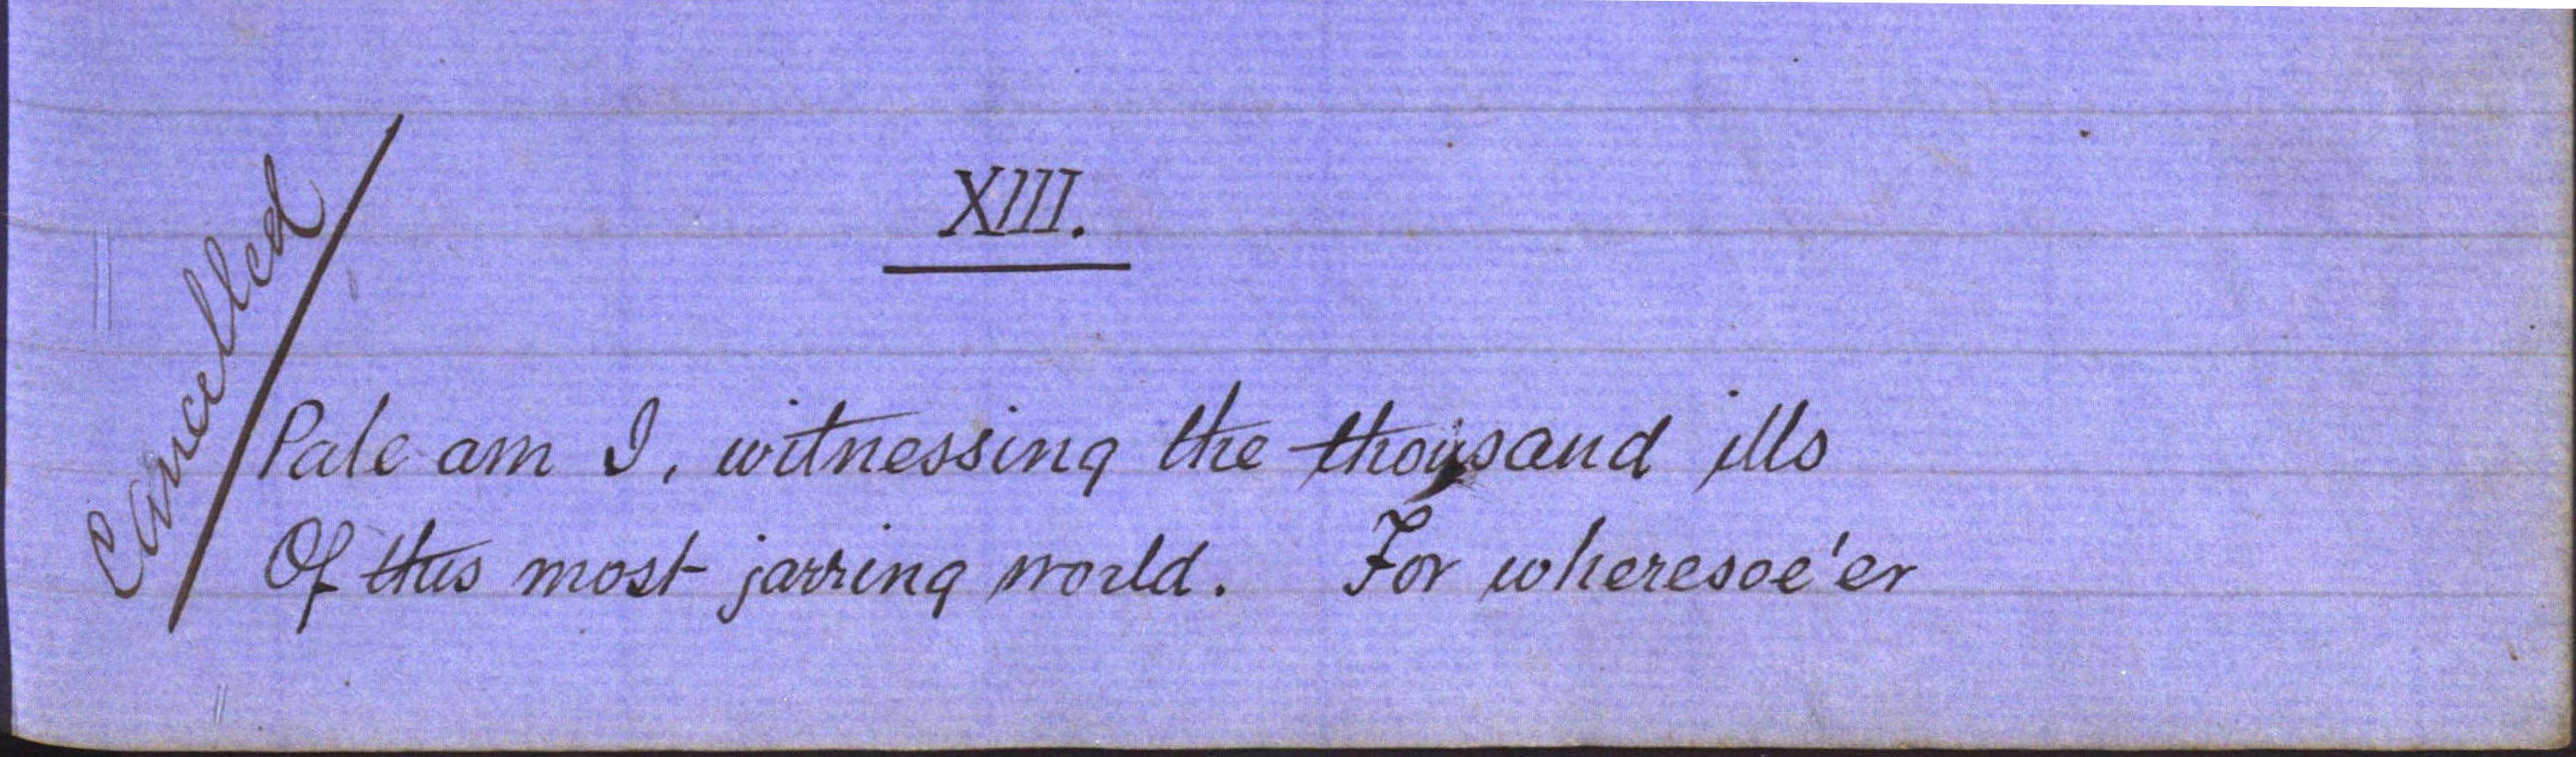 Cancelled
XIII.
Pale am I, witnessing the thousand ills
Of this most jarring world. For wheresoe'er